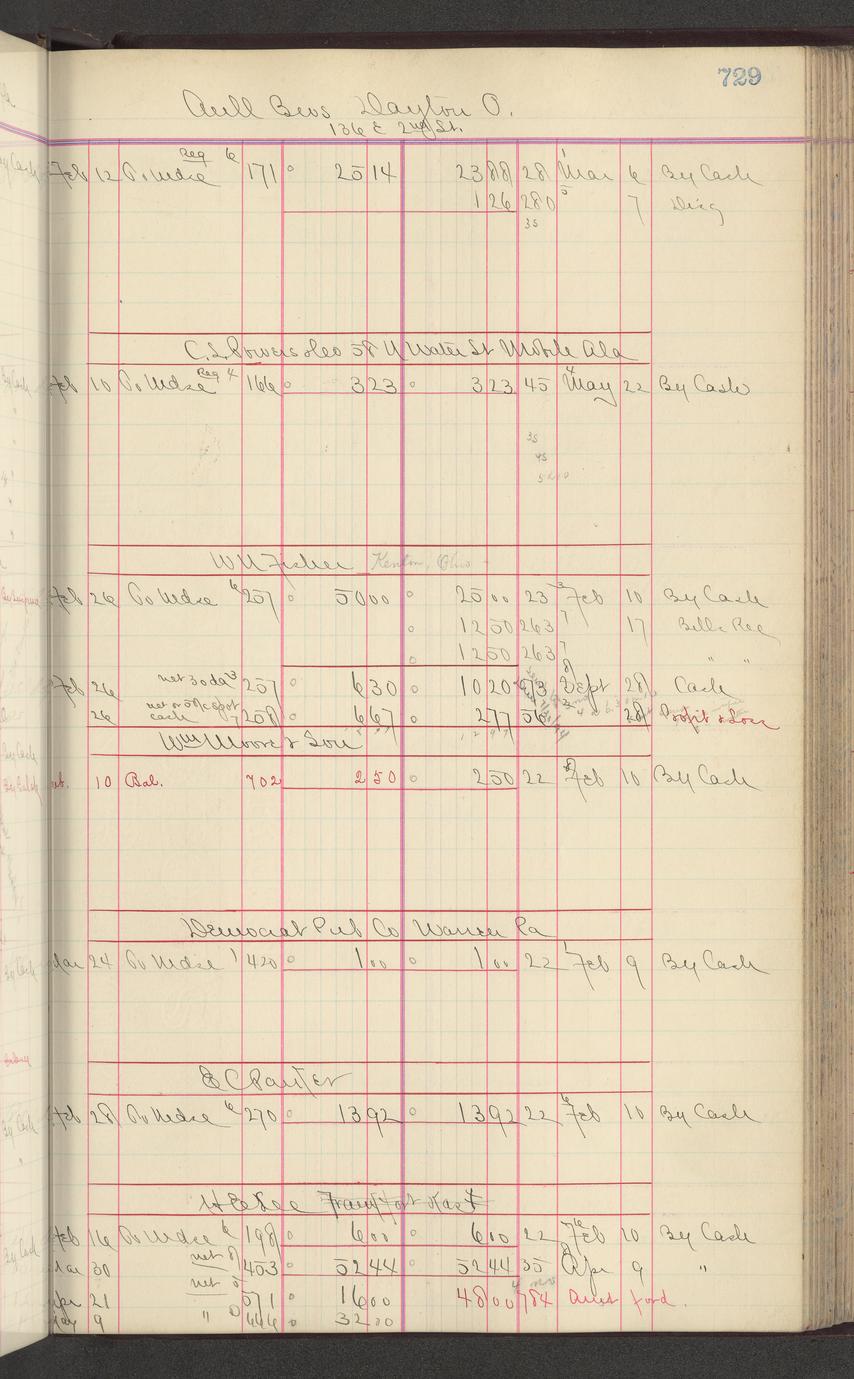 729
Aull Bros Dayton O.
136 E 2nd St.
Req 6
Feb 12 To Mdse 171 25 14 23 88 28 Mar 6 By Cash
1 26 280 7 Disc
35
C.L. Powers & Co 58 N Water St Mobile Ala
Req 4
Feb 10 To Mdse 166 3 23 3 23 45 May 22 By Cash
35
45
W H Fisher Kenton, Ohio
Feb 26 To Mdse 6 257 50 00 25 00 23 Feb 10 By Cash
12 50 263 17 Bills Rec
12 50 263 " "
Feb 26 net 30 da 3 257 6 30 10 20 Sept 28 Cash
net or 5% spot
26 cash 7 258 6 67 2 77 56 28 Profit & Loss
Wm Moore & Son
10 Bal. 702 2 50 2 50 22 Feb 10 By Cash
Democrat Pub Co Warren Pa
Mar 24 To Mdse 1 420 1 00 1 00 22 Feb 9 By Cash
E C Pauter
Feb 28 To Mdse 6 270 13 92 13 92 22 Feb 10 By Cash
H E Lee Frankfort
Feb 16 To Mdse 6 198 6 00 6 00 22 Feb 10 By Cash
Mar 30 net 8 453 52 44 52 44 35 Apr 9 "
net 5
Apr 21 571 16 00 48 00 784 Amt ford.
May 9 " 646 32 00